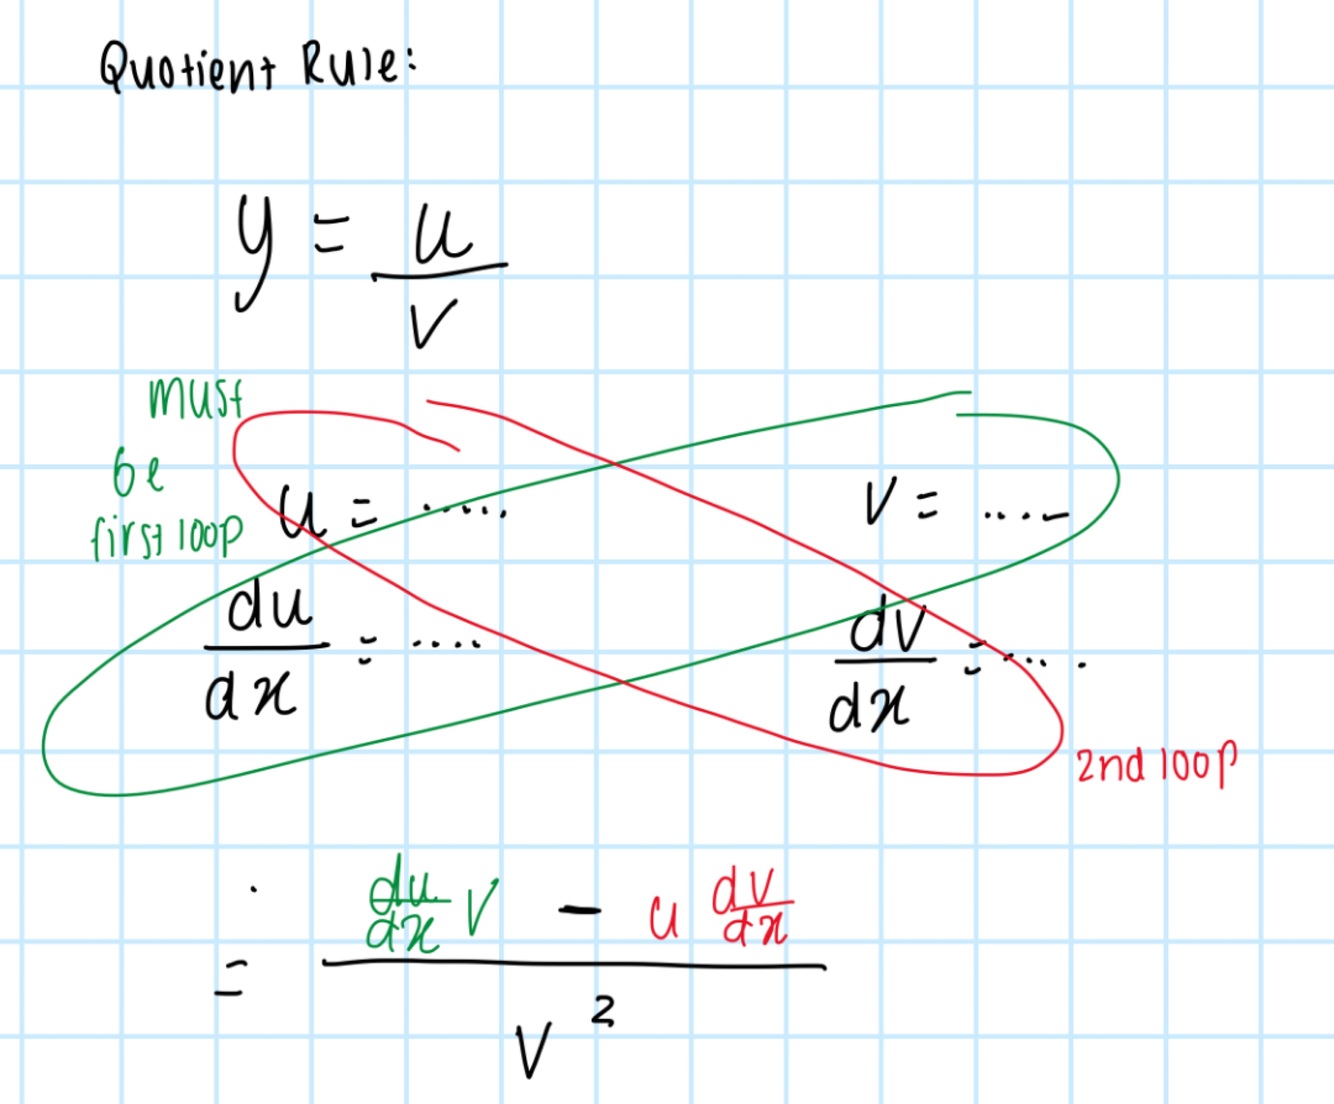 Quotient Rule:
y = u
v
must
be
first loop
u = .....
v = ....-
du
dx = ....
dv
dx = .....
2nd loop
= du/dx v - u dv/dx
v²